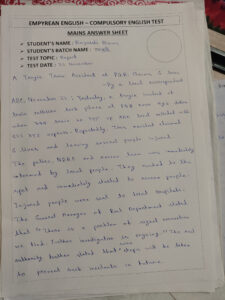 EMPYREAN ENGLISH – COMPULSORY ENGLISH TEST
MAINS ANSWER SHEET
➤ STUDENT'S NAME :
➤ STUDENT'S BATCH NAME :
➤ TEST TOPIC : Report
➤ TEST DATE : 22 November
A Tragic Train Accident at Claims 5 lives
- By a local correspondent
ABC, November 21 : Yesterday, a tragic incident of
train collision took place at
when
Reportedly, this accident claimed
5 lives and leaving several people injured.
The police, NDRF and rescue team was immediately
informed by local people. They rushed to the
spot and immediately started to rescue people.
Injured people were sent to local hospitals.
The General Manager of Rail Department stated
that "There is a problem of signal connection
and further investigation is ongoing." The rail
authority further stated that some steps will be taken
to prevent such incidents in future.